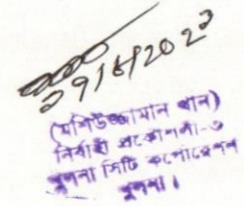 ২৭।৮।২০২৩
(মশিউজ্জামান খান)
নির্বাহী প্রকৌশলী-৩
খুলনা সিটি কর্পোরেশন
খুলনা।